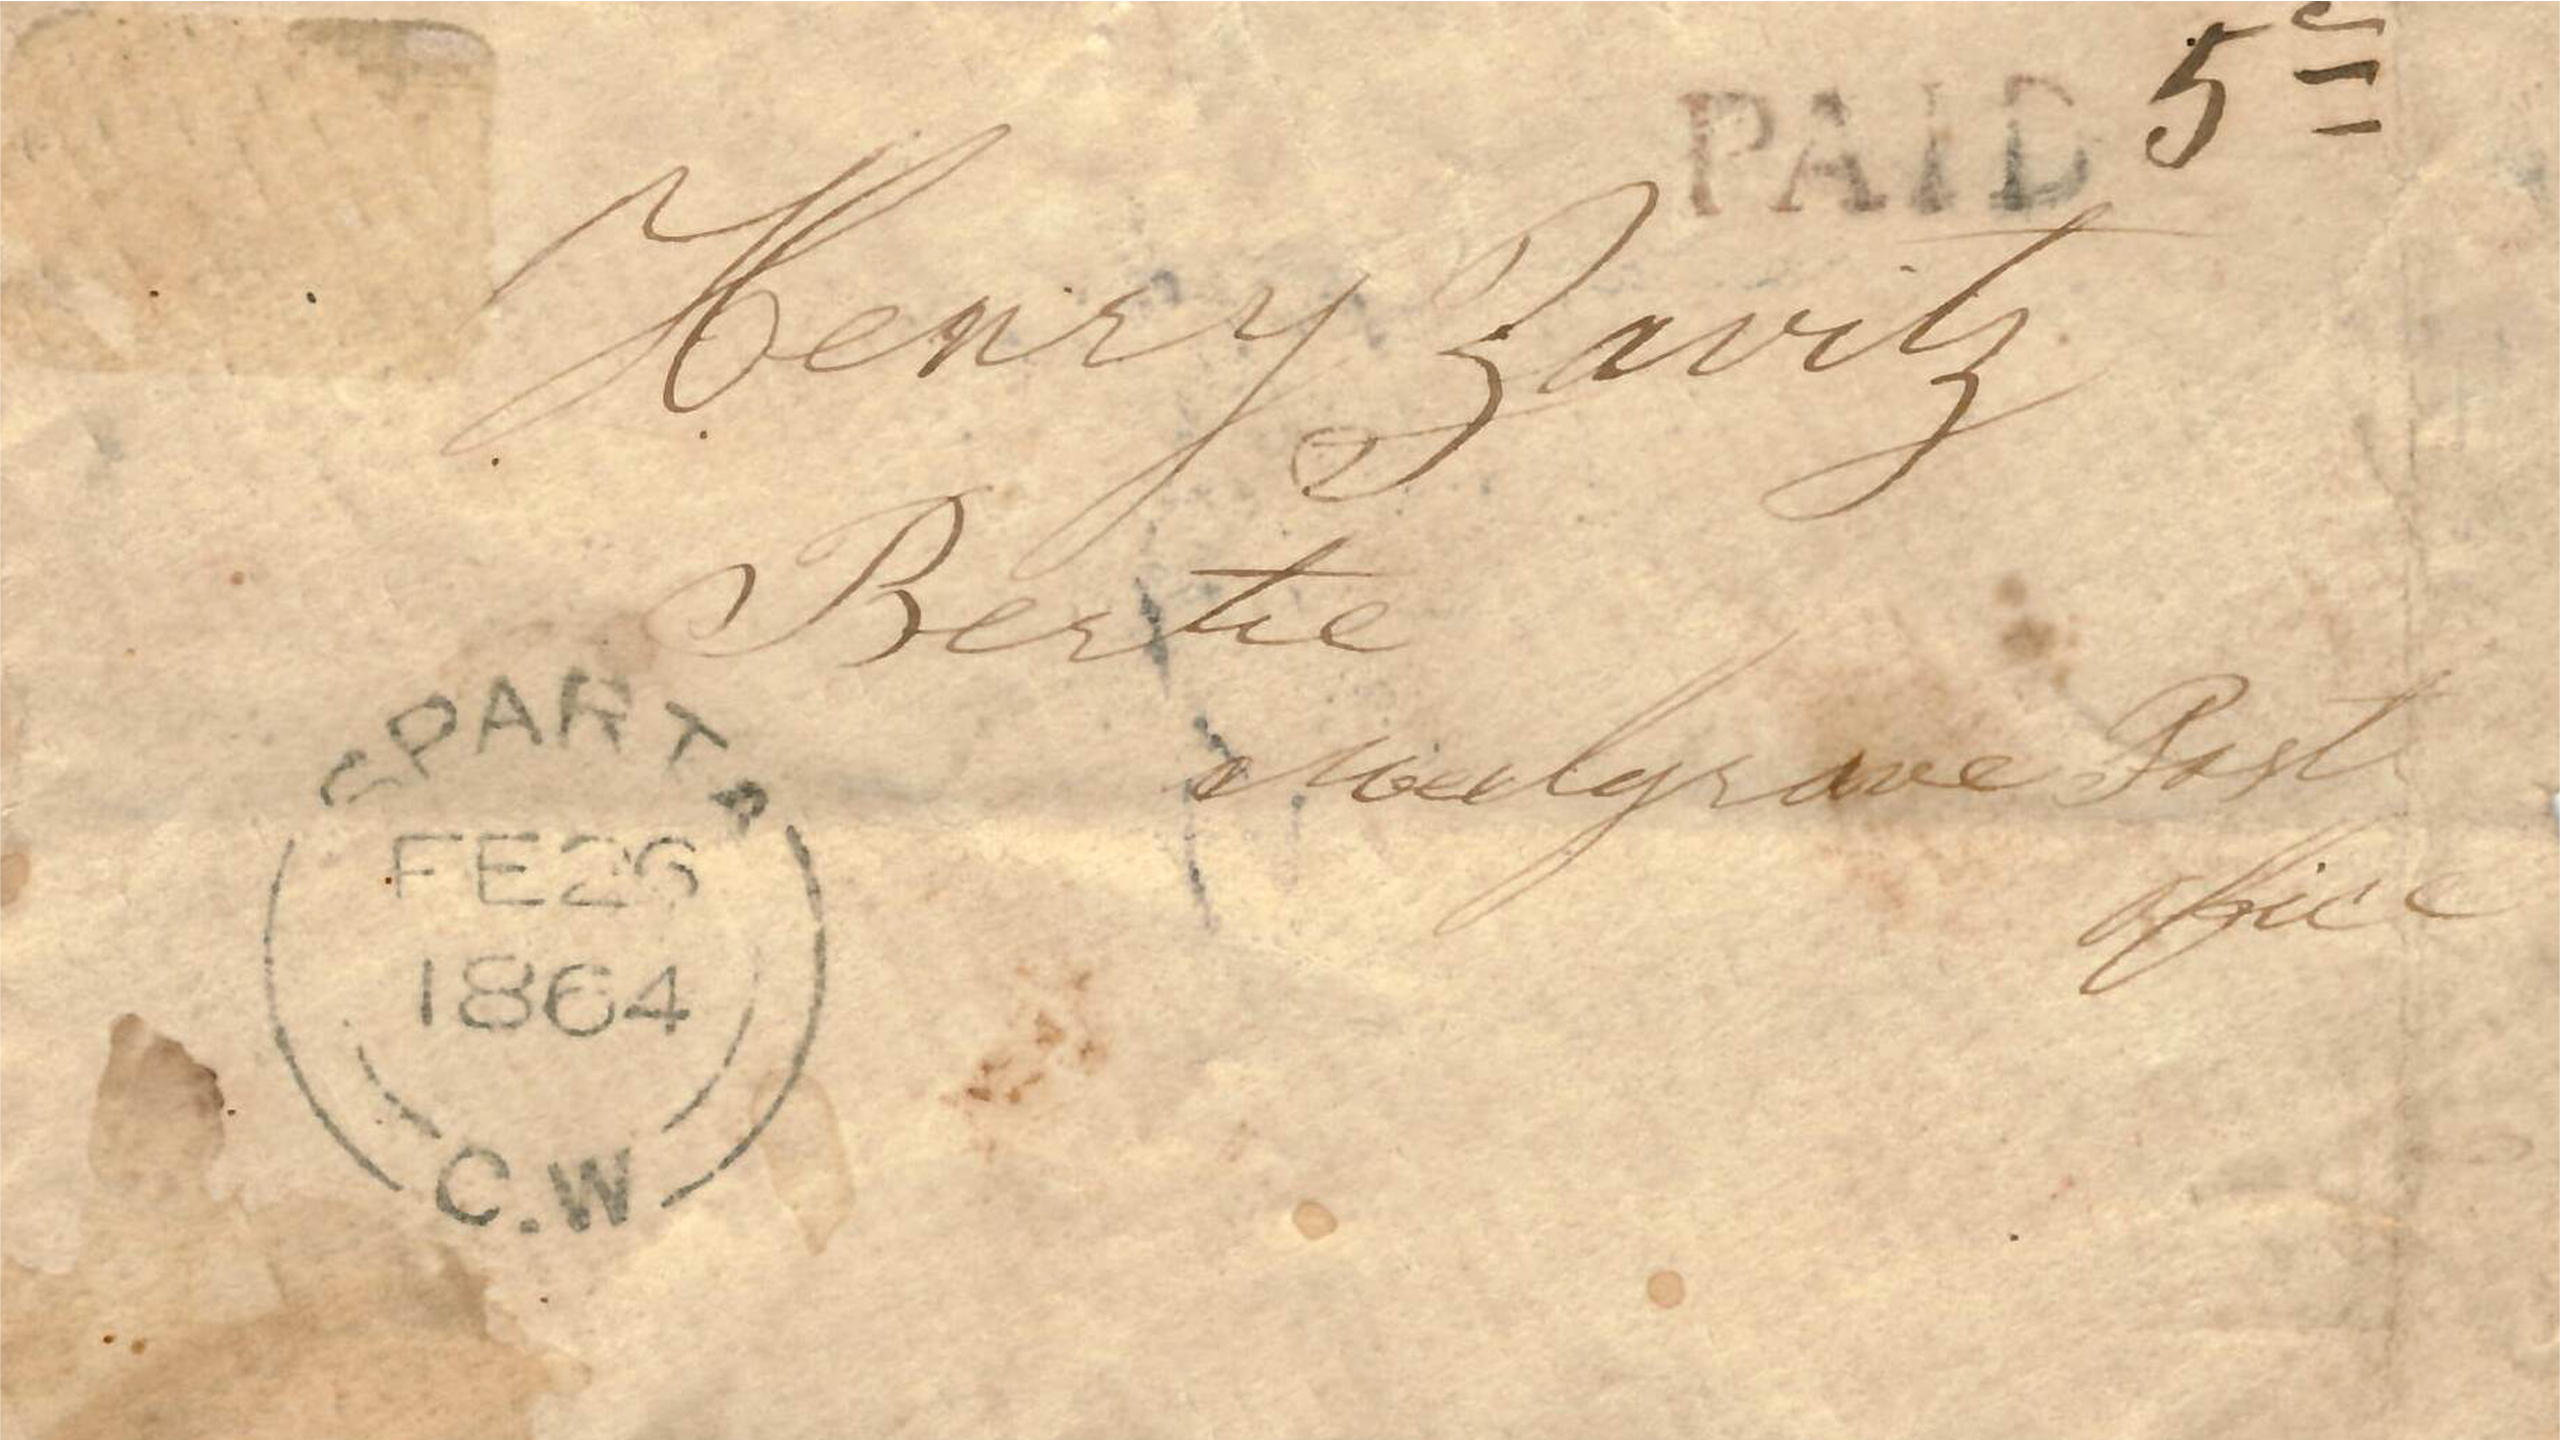 PAID 5c
Henry Zavitz
Bertie
Mulgrave Post
office
SPARTA
FE 26
1864
C.W